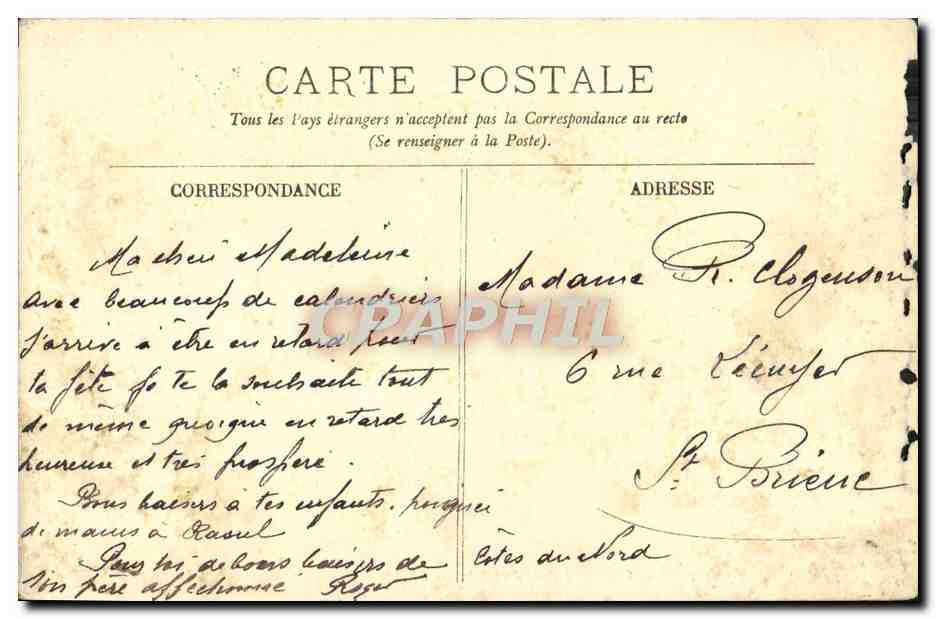 CARTE POSTALE
Tous les Pays étrangers n'acceptent pas la Correspondance au recto
(Se renseigner à la Poste).
CORRESPONDANCE
Ma chère Madeleine
avec beaucoup de calendriers
j'arrive à être en retard pour
ta fête je te la souhaite tout
de même quoique en retard très
heureuse et très prospère.
Bons baisers à tes enfants, poignée
de mains à Raoul
Pour toi de bons baisers de
ton père affectionné Roger
ADRESSE
Madame R. Clogenson
6 rue
St Brieuc
Côtes du Nord
CPAPHIL